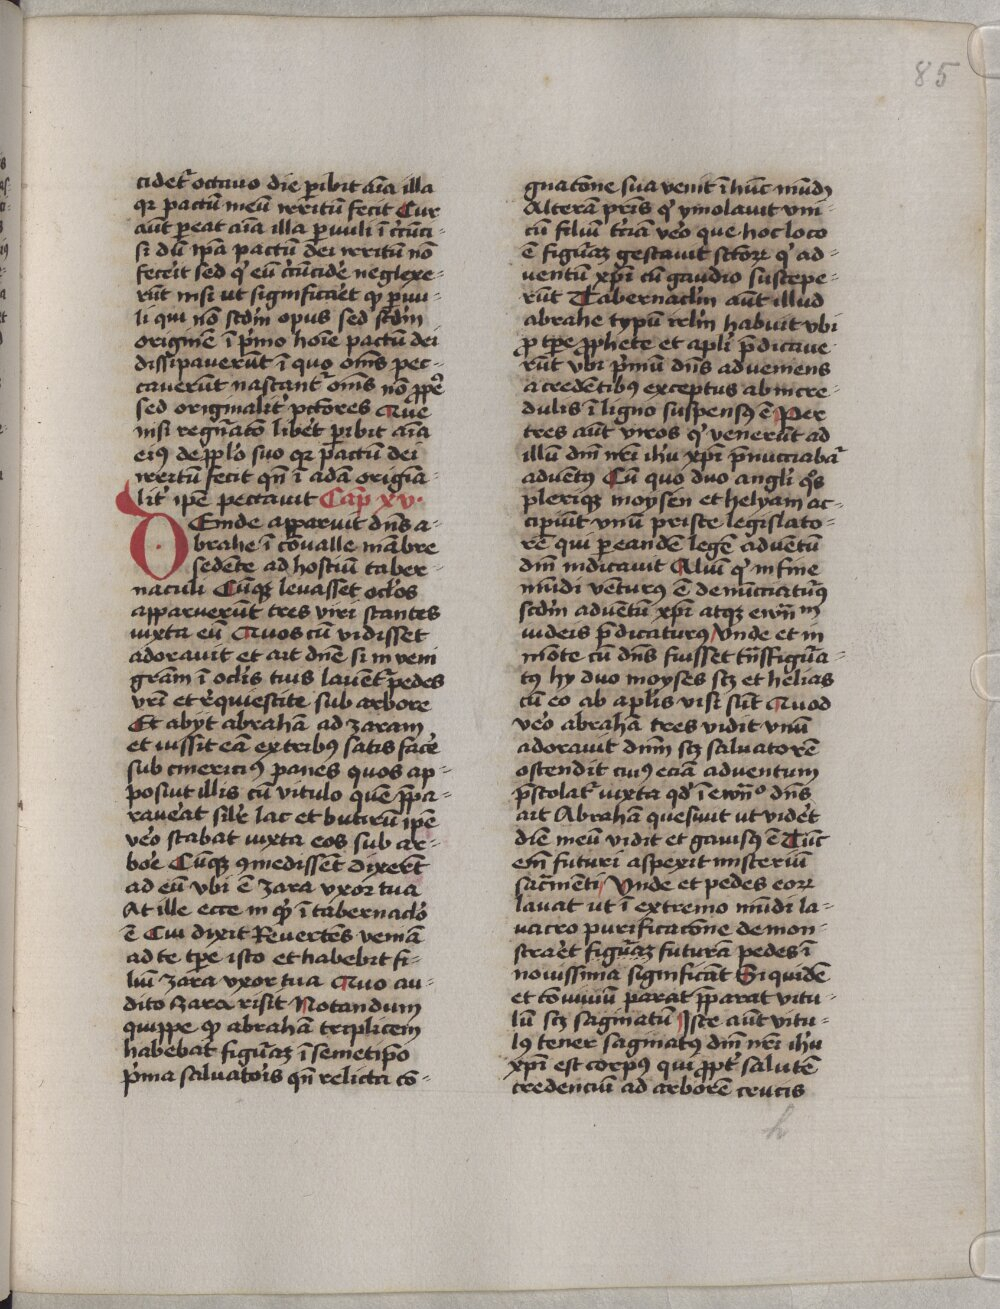 85
cidet᷑ octauo die ꝑibit aīa illa
qꝛ pactū meū irritū fecit Cur
aūt ꝑeat aīa illa ꝑuuli ī cṙcūci-
si dū ip̄a pactū dei irritū nō
fecerit sed qͥ eū cṙcūcide᷑ neglexe-
rūt nisi ut significaret ꝙ ꝑuu-
li qui nō scd̄m opus sed scd̄m
originē ī pͥmo hoīe pactū dei
dissipauerūt ī quo om̄s pec-
cauerūt nascant᷑ om̄s nō ꝓpͥe
sed originalit᷑ pctōres Que
nisi regn̄atō libet ꝑibit aīa
eiꝰ de pplo suo qꝛ pactū dei
irritū fecit qn̄ ī adā origīa-
lit᷑ ip̄e peccauit Cap xv.
DEinde apparuit dn̄s a-
brahe ī cōualle mābre
sedēte ad hostiū taber-
naculi Cūqꝫ leuasset oclos
apparuerūt tres viri stantes
iuxta eū Quos cū vidisset
adorauit et ait dn̄e si inveni
gr̄am ī oclis tuis lauent᷑ pedes
vr̄i et requiescite sub arbore
Et abijt abrahā ad zaram
et iussit eā ex tribꝰ satis face᷑
sub cinericiꝰ panes quos ap-
posiut illis cū vitulo quē p̄pa-
rauerat sil᷑e lac et butirū ip̄e
vēo stabat iuxta eos sub ar-
bore Cūqꝫ ꝯmedissēt dixerūt
ad eū vbi ē zara vxor tua
At ille ecce inqͥ ī tabernaclo
ē Cui dixit Reuertēs veniā
ad te tꝑe isto et habebit fi-
liū zara vxor tua Quo au-
dito zara risit Notandum
quippe ꝙ abrahā triplicem
habebat figurāꝫ ī semetip̄o
pͥma saluatoris qn̄ relicta cō-
gnatōne sua venit ī hūc mūdꝫ
Alterā pr̄is qͥ ymolauit vni-
cū filiū tr̄ciā vēo que hoc loco
ē figurāꝫ gestauit sctōꝝ qͥ ad-
uentū xp̄i cū gaudio suscepe-
rūt Tabernaclm aūt illud
abrahe typū irlm̄ habuit vbi
ꝓ tꝑe ꝓphete et apl̄i p̄dicaue
rūt vbi pͥmū dn̄s adueniens
a credētibꝰ exceptus ab incre-
dulis ī ligno suspensꝰ ē Per
tres aūt viros qͥ venerūt ad
illū dn̄i nr̄i ihū xp̄i p̄nucciabat᷑
aduētꝰ Cū quo duo angli qͦs
pleriqꝫ moysen et helyam ac-
cipiūt vnū priste legislato-
rē qui ꝑ eandē legē aduētū
dn̄i indicauit Aliū qͥ in fine
mūdi vēturꝰ ē denucciaturꝰ
scd̄m aduētū xp̄i atqꝫ ewn̄m
iudeis p̄dicaturꝰ Vnde et in
mōte cū dn̄s fuisset tn̄sfigura-
tꝰ hy duo moyses scꝫ et helias
cū eo ab apl̄is visi sūt Quod
vēo abrahā tres vidit vnū
adorauit dn̄m scꝫ saluatorē
ostendit cuiꝰ eciā aduentum
p̄stolat᷑ iuxta qd̄ ī ewn̄o dn̄s
ait Abrahā quesiuit ut videt
diē meū vidit et gauisꝰ ē Tūc
em̄ futuri aspexit misteriū
sacramēti Vnde et pedes eoꝝ
lauat ut ī extremo mūdi la-
uacro purificacōne demon-
straret figurāꝫ futurā pedes ī
nouissima significāt Si quidē
et cōuiuiū parat p̄parat vitu-
lū scꝫ saginatū Iste aūt vitu-
lꝰ tener saginatꝰ dn̄i nr̄i ihū
xp̄i est corpꝰ qui ꝓpt᷑ salutē
credenciū ad arborē crucis
h